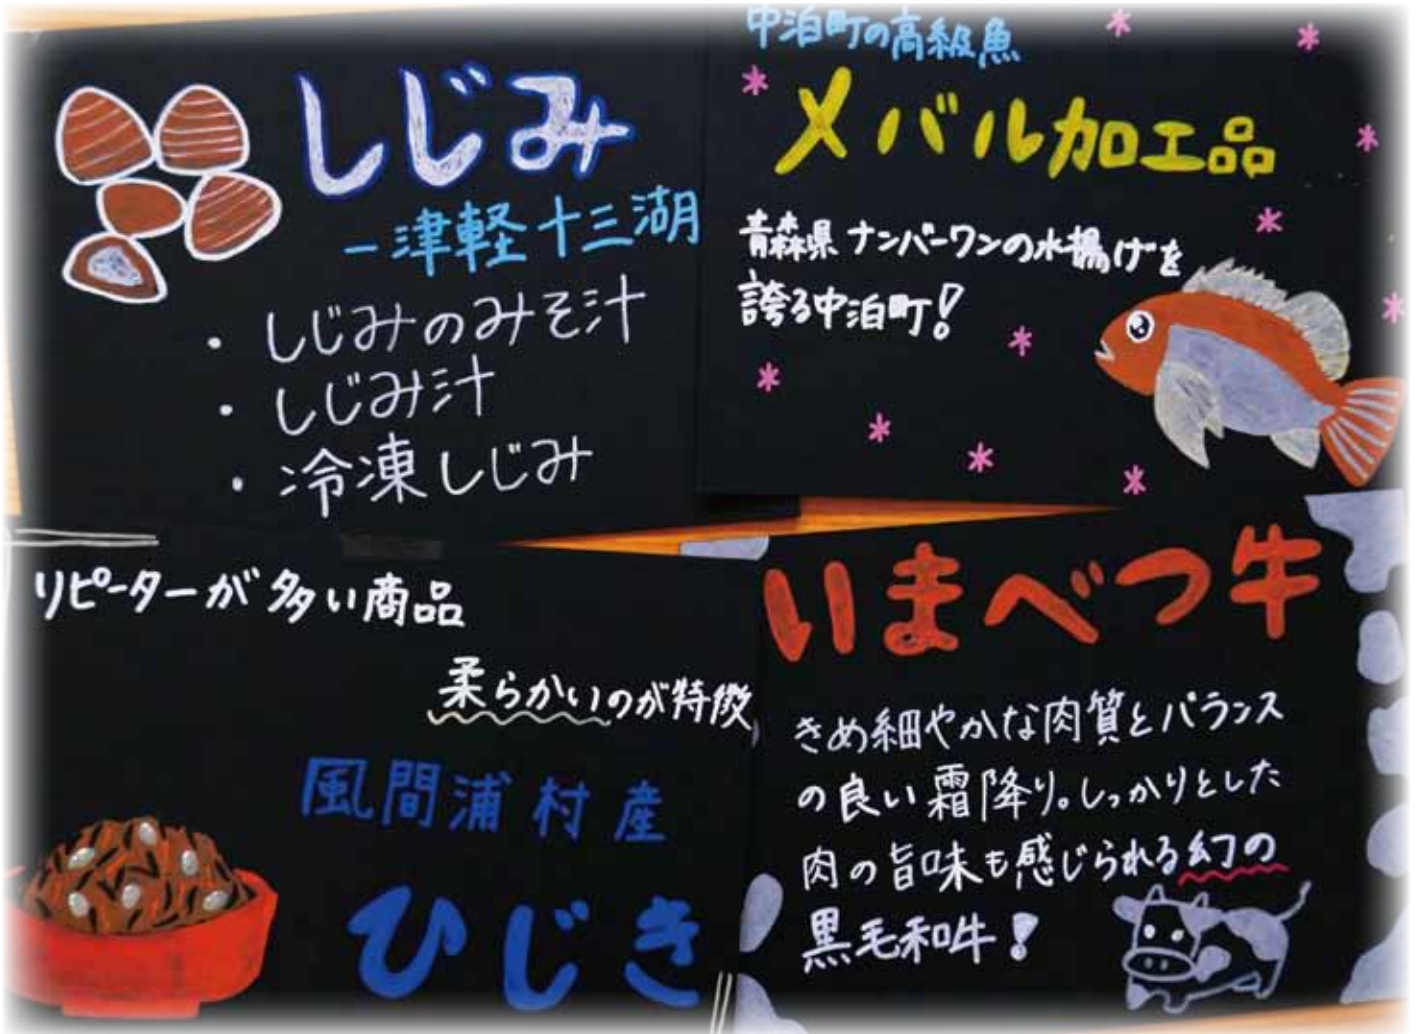 しじみ
ー津軽十三湖
・しじみのみそ汁
・しじみ汁
・冷凍しじみ
中泊町の高級魚
メバル加工品
青森県ナンバーワンの水揚げを
誇る中泊町!
リピーターが多い商品
柔らかいのが特徴
風間浦村産
ひじき
いまべつ牛
きめ細やかな肉質とバランス
の良い霜降り。しっかりとした
肉の旨味も感じられる幻の
黒毛和牛!